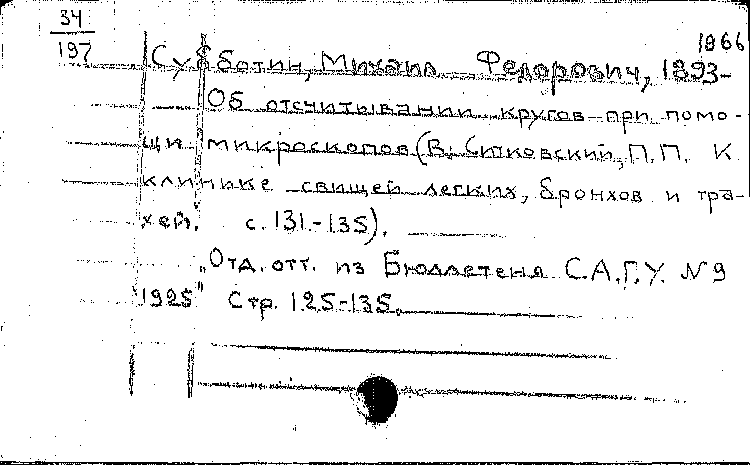 34
197
1966
Субботин, Михаил Федорович, 1893-
Об отсчитывании кругов при помо-
щи микроскопов (В. Ситковский, П.П. К
клинике свищей легких, бронхов и тра-
хей. с. 131.-135).
„Отд. отт. из Бюллетеня С.А.Г.У. № 9
1925" Стр. 125-135.